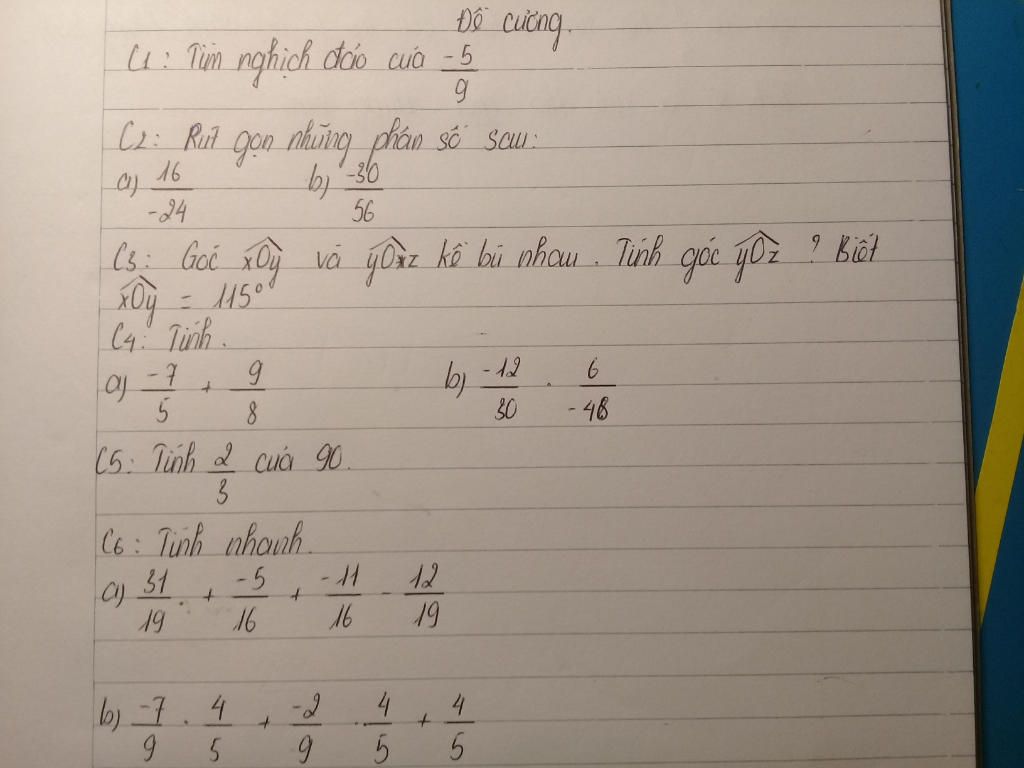 Đề cương.
C1: Tìm nghịch đảo của -5/9
C2: Rút gọn những phân số sau:
a) 16/-24 b) -30/56
C3: Góc xOy và yOz kề bù nhau. Tính góc yOz ? Biết
xOy = 115°
C4: Tính.
a) -7/5 + 9/8 b) -12/30 . 6/-48
C5: Tính 2/3 của 90.
C6: Tính nhanh.
a) 31/19 + -5/16 + -11/16 - 12/19
b) -7/9 . 4/5 + -2/9 . 4/5 + 4/5